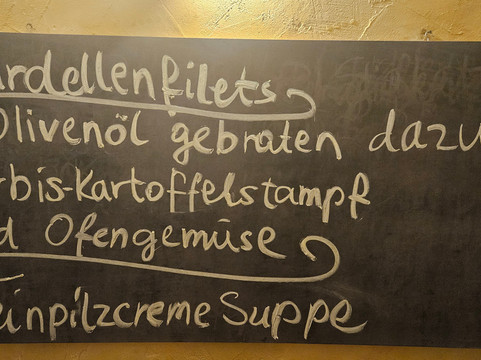 ardellenfilets
Olivenöl gebraten dazu
rbis-Kartoffelstampf
d Ofengemüse
einpilzcreme Suppe